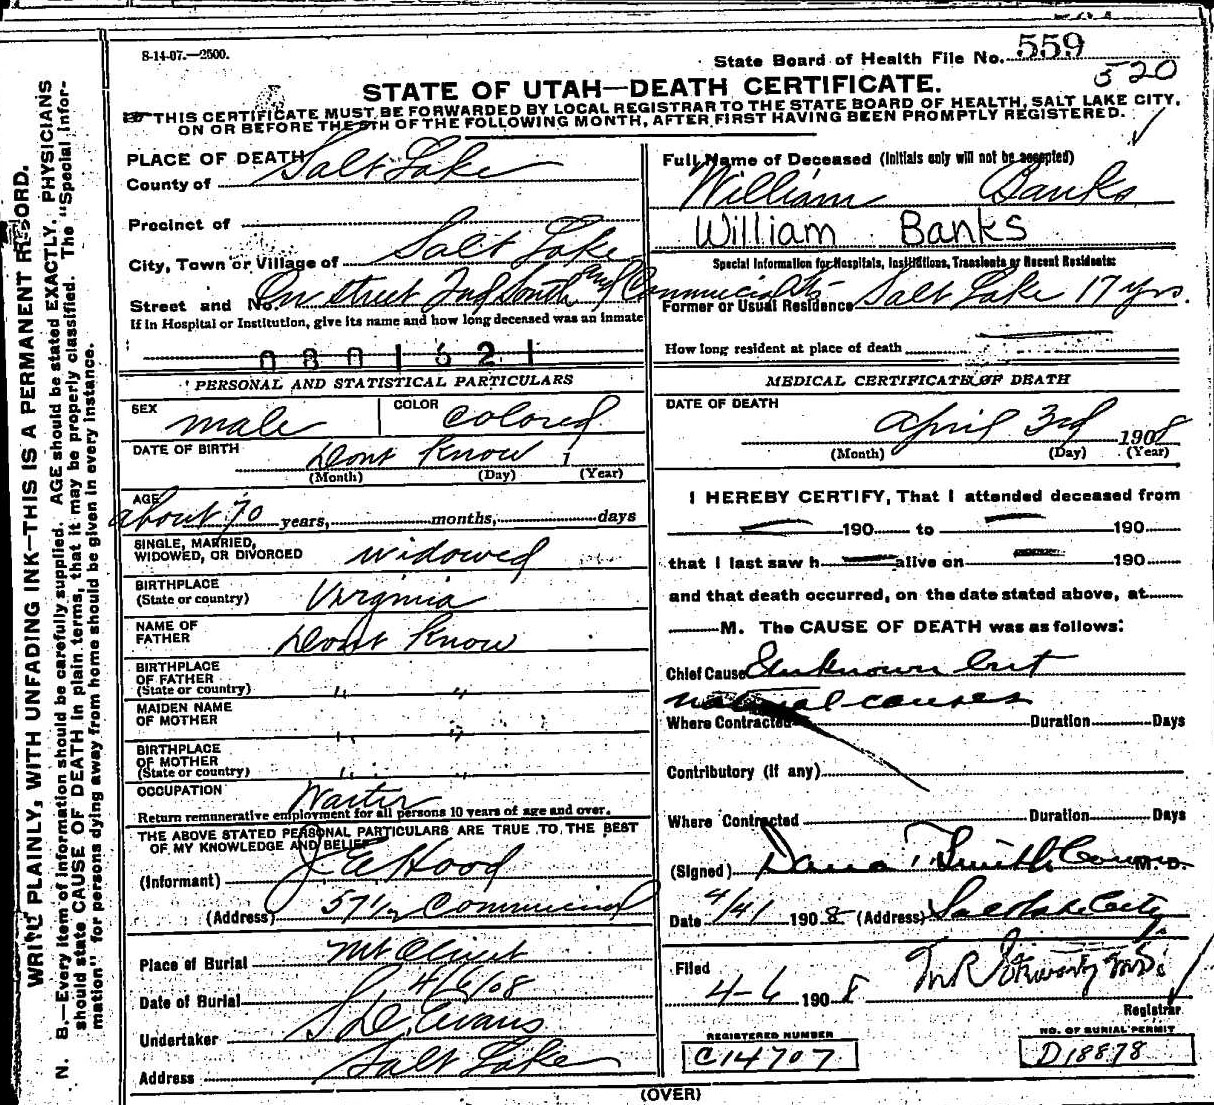 8-14-07.—2500.
State Board of Health File No. 559
520
STATE OF UTAH—DEATH CERTIFICATE.
THIS CERTIFICATE MUST BE FORWARDED BY LOCAL REGISTRAR TO THE STATE BOARD OF HEALTH, SALT LAKE CITY,
ON OR BEFORE THE 5TH OF THE FOLLOWING MONTH, AFTER FIRST HAVING BEEN PROMPTLY REGISTERED.
WRITE PLAINLY, WITH UNFADING INK—THIS IS A PERMANENT RECORD.
N. B.—Every item of information should be carefully supplied. AGE should be stated EXACTLY. PHYSICIANS
should state CAUSE OF DEATH in plain terms, that it may be properly classified. The "Special Infor-
mation" for persons dying away from home should be given in every instance.
PLACE OF DEATH
County of Salt Lake
Precinct of
City, Town or Village of Salt Lake
Street and No. On street 2nd South and Commercial Sts
If in Hospital or Institution, give its name and how long deceased was an inmate
0801521
PERSONAL AND STATISTICAL PARTICULARS
SEX male COLOR colored
DATE OF BIRTH Dont Know 1
(Month) (Day) (Year)
AGE about 70 years, months, days
SINGLE, MARRIED,
WIDOWED, OR DIVORCED widowed
BIRTHPLACE
(State or country) Virginia
NAME OF
FATHER Dont Know
BIRTHPLACE
OF FATHER
(State or country) " "
MAIDEN NAME
OF MOTHER " "
BIRTHPLACE
OF MOTHER
(State or country) " "
OCCUPATION Waiter
Return remunerative employment for all persons 10 years of age and over.
THE ABOVE STATED PERSONAL PARTICULARS ARE TRUE TO THE BEST
OF MY KNOWLEDGE AND BELIEF
(Informant) J E Hood
(Address) 57½ Commercial
Place of Burial Mt Olivet
Date of Burial 4/6/08
Undertaker S D Evans
Address Salt Lake
Full Name of Deceased (Initials only will not be accepted)
William Banks
William Banks
Special Information for Hospitals, Institutions, Transients or Recent Residents:
Former or Usual Residence Salt Lake 17 yrs.
How long resident at place of death
MEDICAL CERTIFICATE OF DEATH
DATE OF DEATH
April 3rd 1908
(Month) (Day) (Year)
I HEREBY CERTIFY, That I attended deceased from
190 to 190
that I last saw h alive on 190
and that death occurred, on the date stated above, at
M. The CAUSE OF DEATH was as follows:
Chief Cause Unknown but
natural causes
Where Contracted Duration Days
Contributory (if any)
Where Contracted Duration Days
(Signed) Dana T. Smith M. D.
Date 4/4 1908 (Address) Salt Lake City
Filed
4-6 1908
Registrar
REGISTERED NUMBER
C14707
NO. OF BURIAL PERMIT
D18878
(OVER)